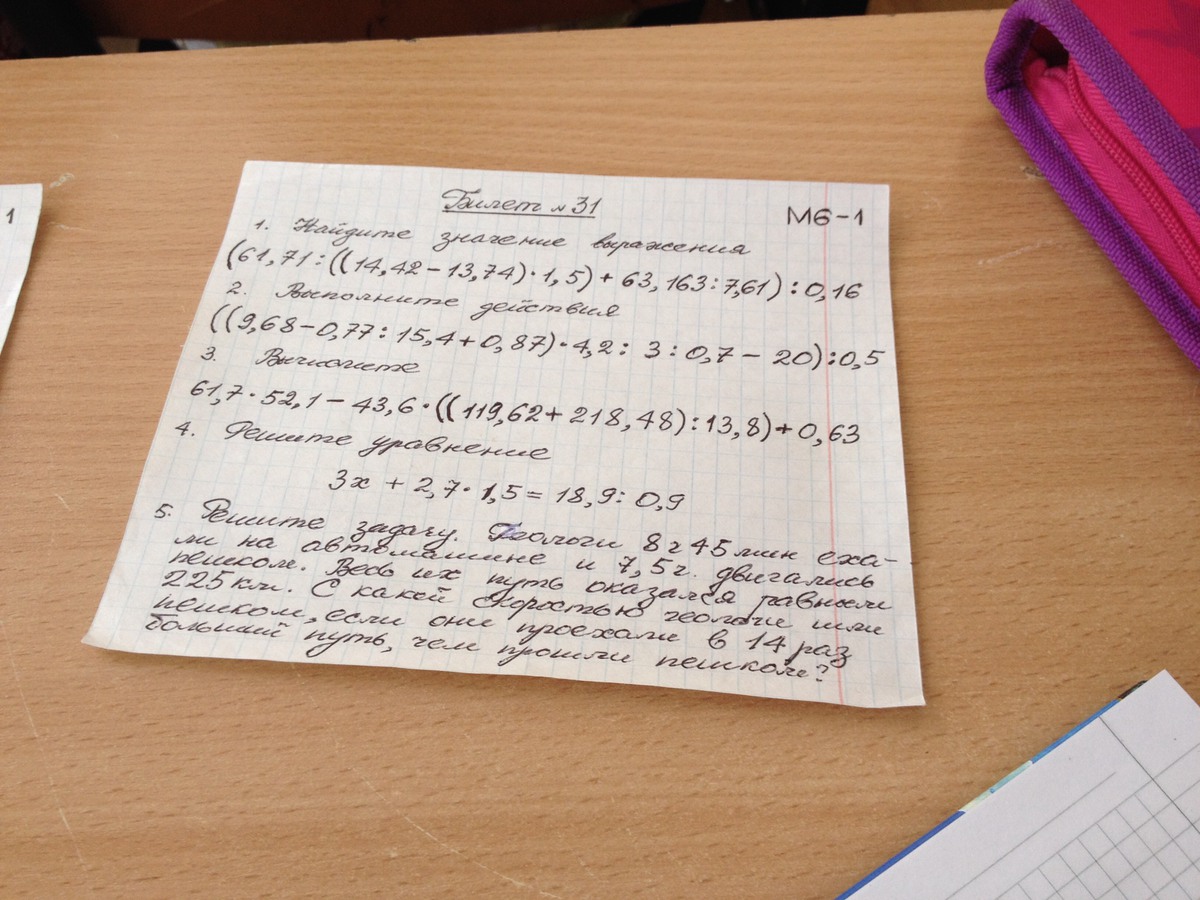 Билет №31
М6-1
1. Найдите значение выражения
(61,71:((14,42-13,74)·1,5)+63,163:7,61):0,16
2. Выполните действия
((9,68-0,77:15,4+0,87)·4,2:3:0,7-20):0,5
3. Вычислите
61,7·52,1-43,6·((119,62+218,48):13,8)+0,63
4. Решите уравнение
3х + 2,7·1,5 = 18,9:0,9
5. Решите задачу. Геологи 8ч 45мин еха-
ли на автомашине и 7,5ч. двигались
пешком. Весь их путь оказался равным
225км. С какой скоростью геологи шли
пешком, если они проехали в 14 раз
больший путь, чем прошли пешком?
1